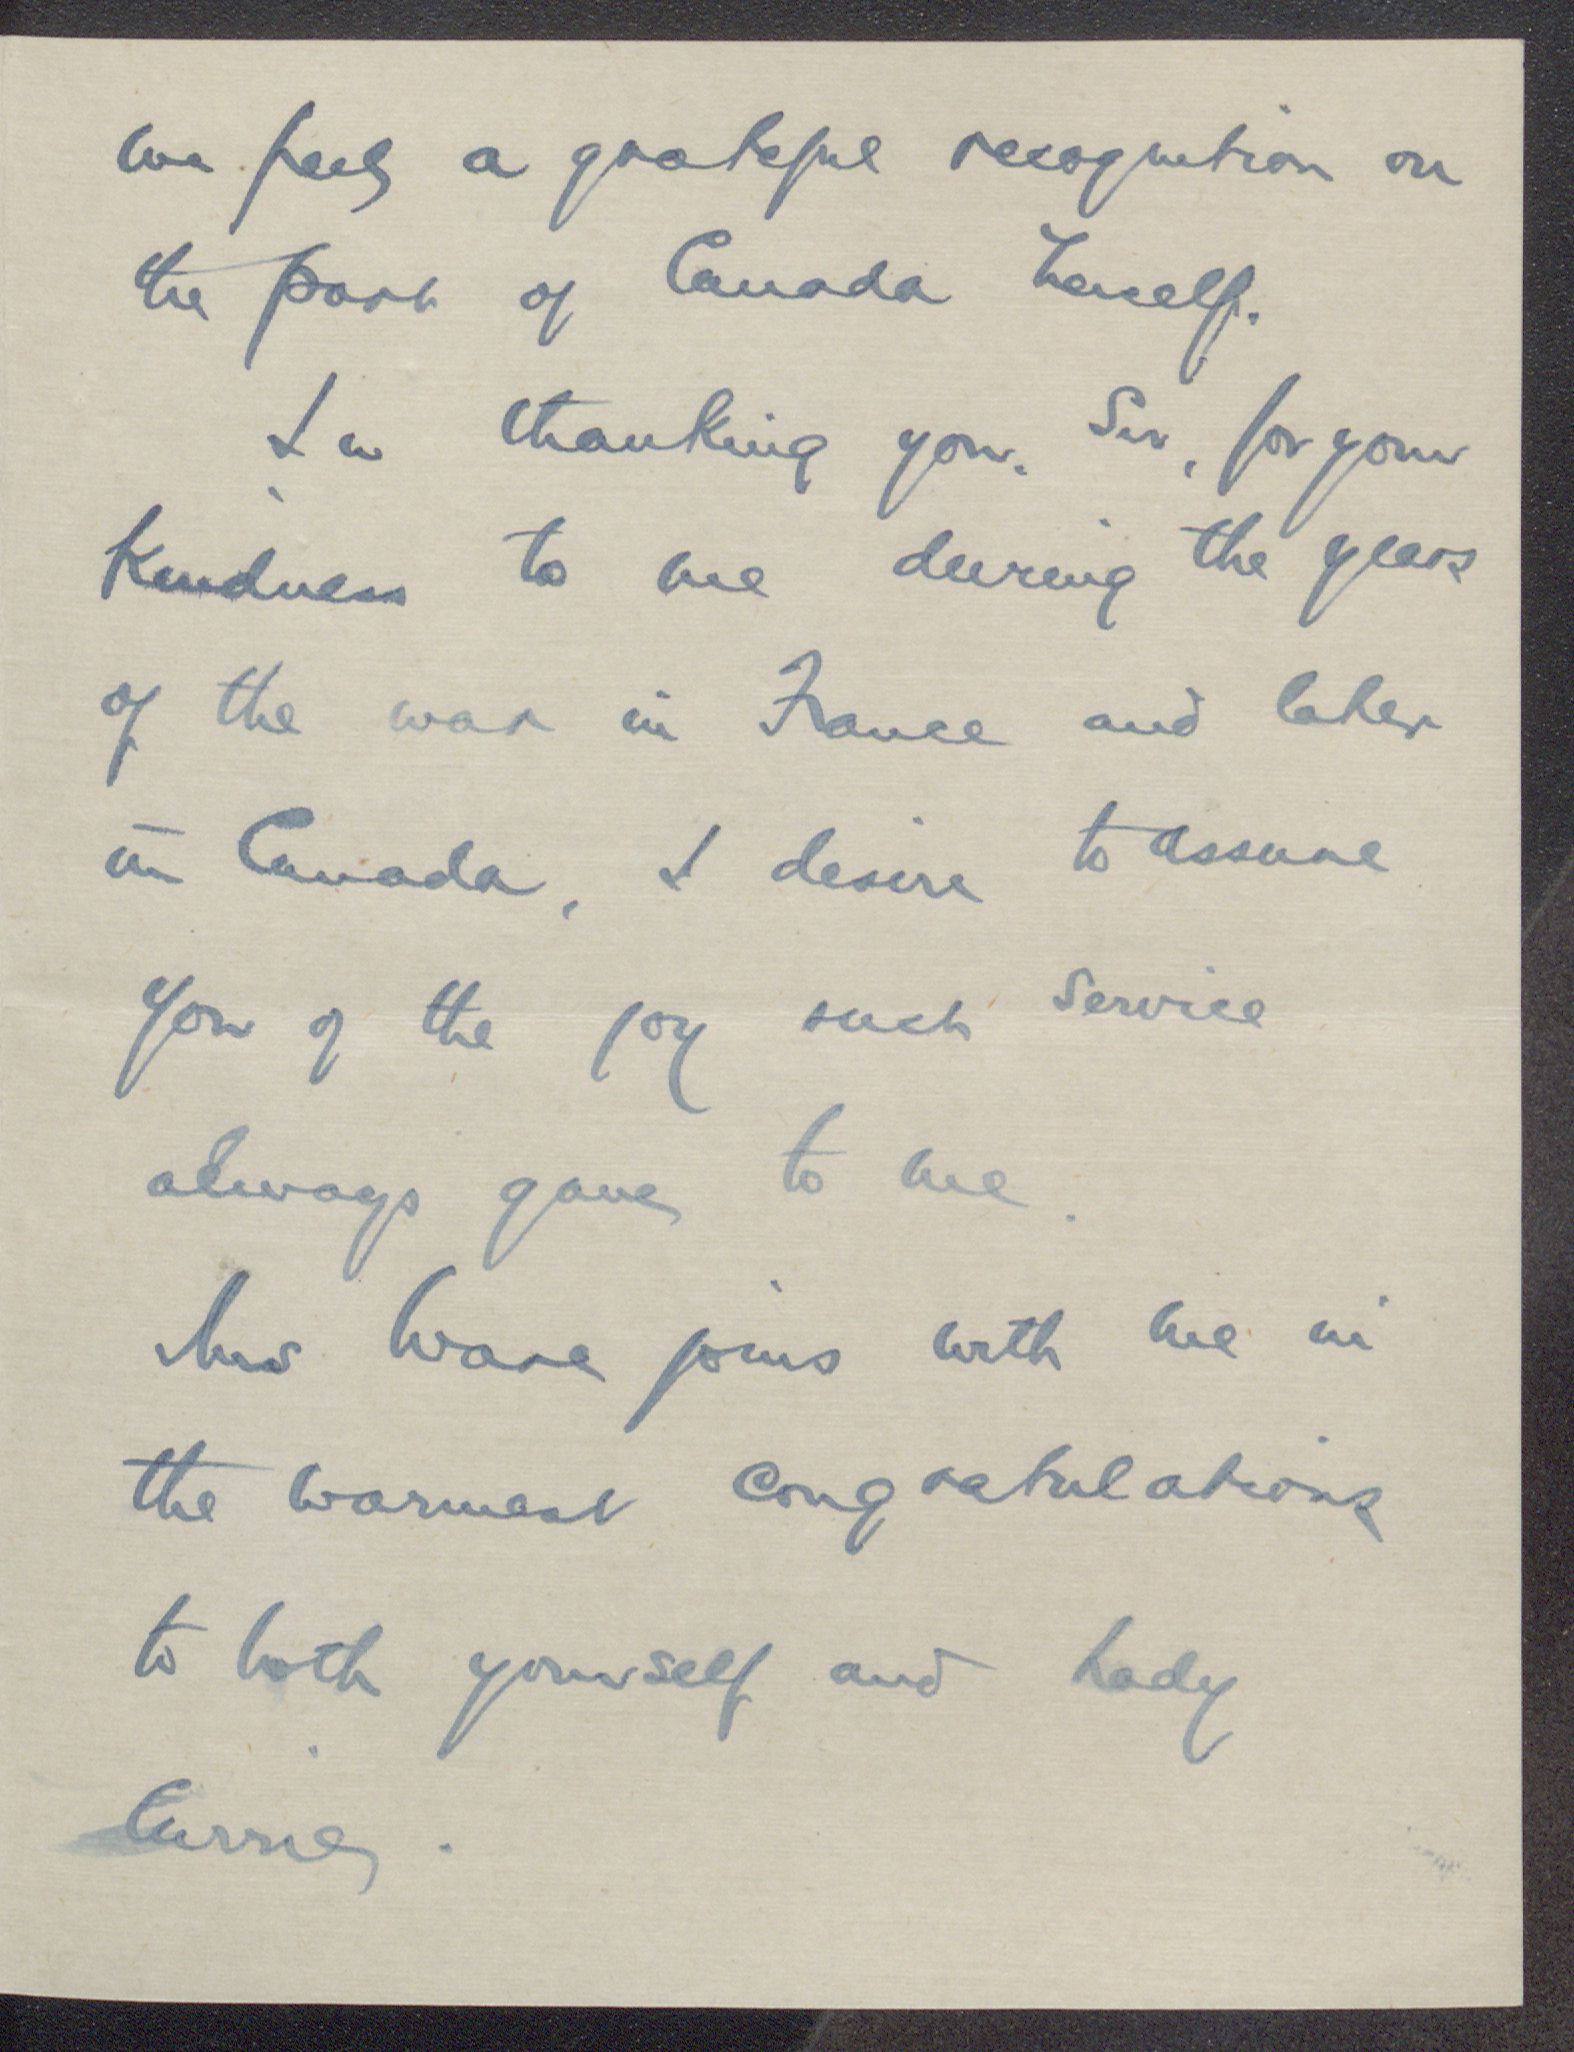 we feel, a grateful recognition on
the part of Canada herself.
In thanking you, Sir, for your
kindness to me during the years
of the war in France and later
in Canada, I desire to assure
you of the joy such service
always gave to me.
Mrs Ware joins with me in
the warmest congratulations
to both yourself and Lady
Currie.